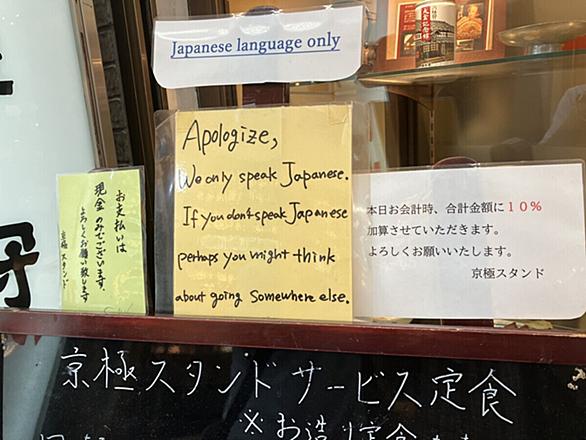 Japanese language only
Apologize,
We only speak Japanese.
If you don't speak Japanese
perhaps you might think
about going Somewhere else.
お支払いは
現金のみでございます。
よろしくお願い致します
京極スタンド
本日お会計時、合計金額に１０％
加算させていただきます。
よろしくお願いいたします。
京極スタンド
京極スタンドサービス定食
※お造り定食